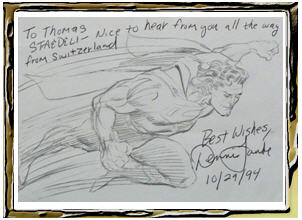 To Thomas
STAEDELI - Nice to hear from you all the way
from Switzerland
Best Wishes,
10/29/94